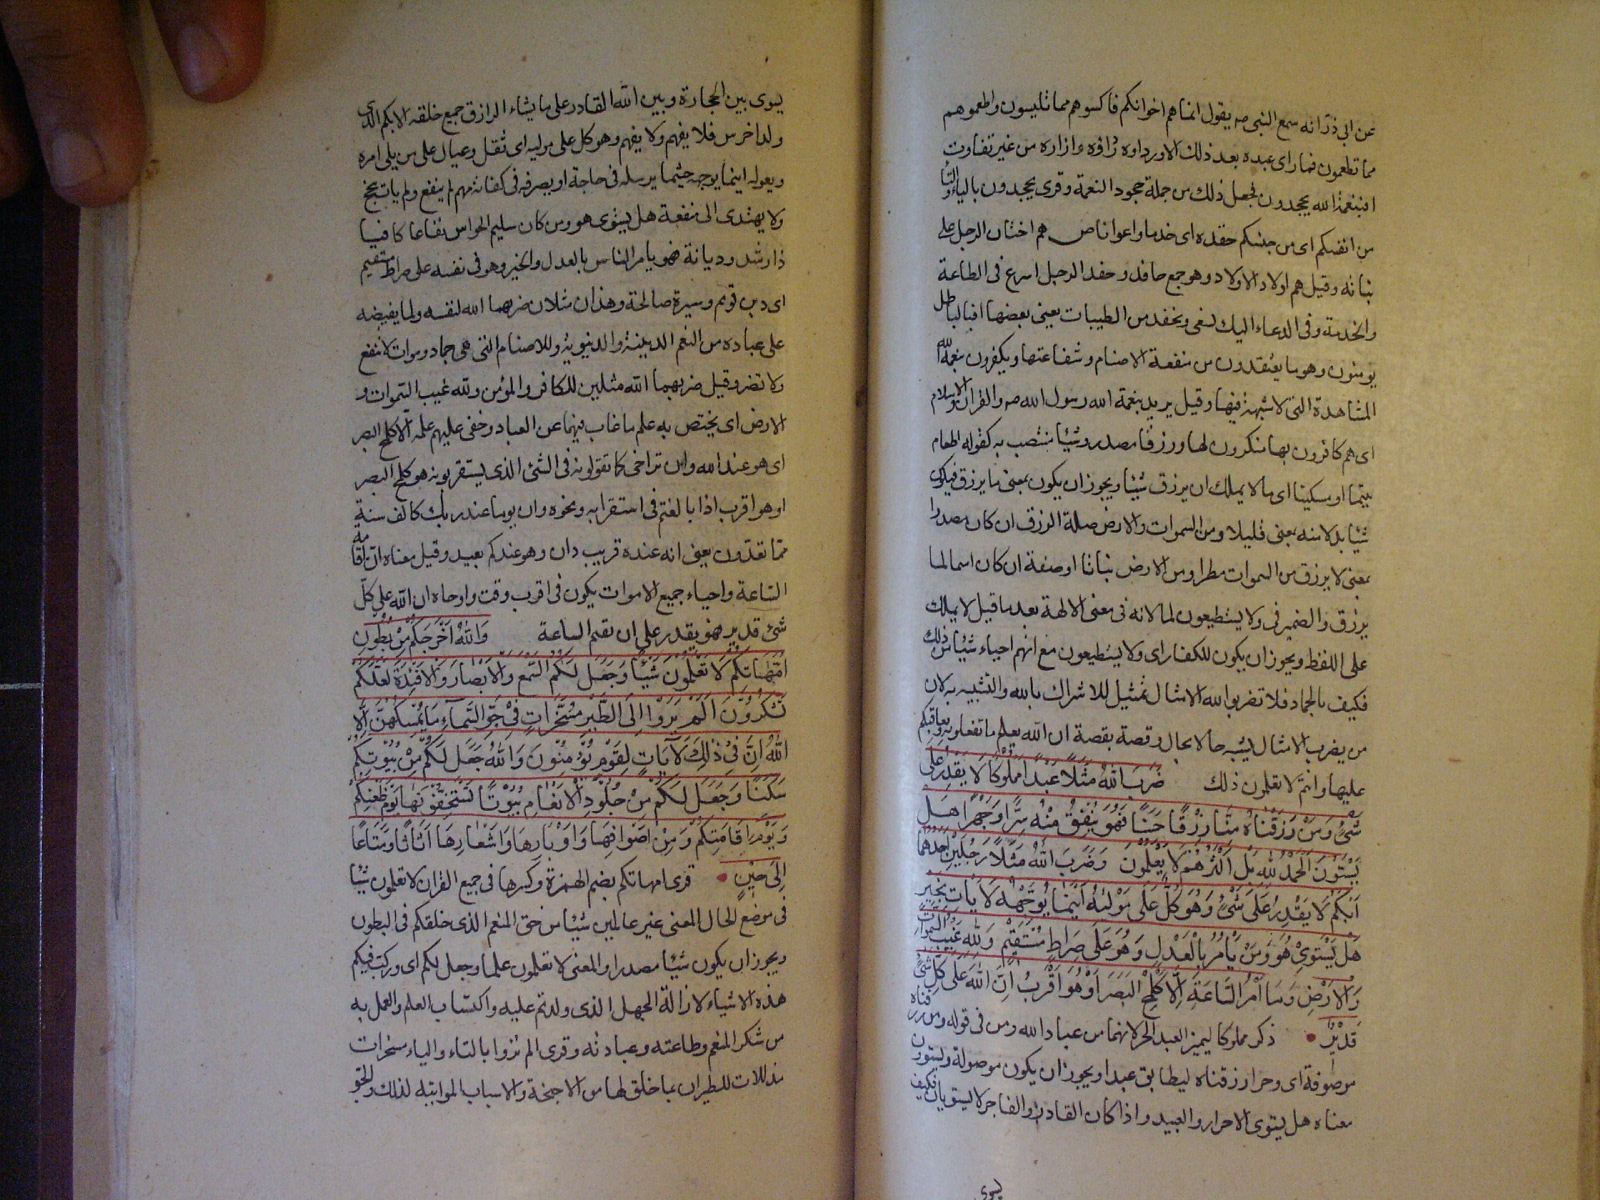 عن ابى ذر انه سمع النبى صه يقول انما هم اخوانكم فاكسوهم مما تلبسون واطعموهم
مما تطعمون فما راى عبده بعد ذلك الا ورداوه رداؤه وازاره من غير تفاوت
افبنعمة الله يجحدون لجعل ذلك من جملة جحود النعمة وقرى يجحدون بالياء والتاء
من انفسكم اى من جنسكم حفدة اى خدما واعوانا هم اختان الرجل على
بناته وقيل هم اولاد الاولاد وهو جمع حافد وحفد الرجل اسرع فى الطاعة
والخدمة وفى الدعاء اليك نسعى ونحفد من الطيبات يعنى بعضها افبالباطل
يومنون وهو ما يعتقدون من منفعة الاصنام وشفاعتها ويكفرون بنعمة الله
المشاهدة التى لا شبهة فيها وقيل يريد بنعمة الله رسول الله صه والقران والاسلام
اى هم كافرون بها منكرون لها ورزقا مصدر وشيئا منتصب به كقوله اطعام
يتيما او مسكينا اى ما لا يملك ان يرزق شيئا ويجوز ان يكون بمعنى ما يرزق فيكون
شيئا بدلا منه بمعنى قليلا ومن السموات والارض صلة الرزق ان كان مصدرا
بمعنى لا يرزق من السموات مطرا ومن الارض نباتا او صفة ان كان اسما لما
يرزق والضمير فى ولا يستطيعون لما لانه فى معنى الالهة بعد ما قيل لا يملك
على اللفظ ويجوز ان يكون للكفار اى ولا يستطيعون مع انهم احياء شيئا من ذلك
فكيف بالجماد فلا تضربوا لله الامثال تمثيل للاشراك بالله والتشبيه به لان
من يضرب الامثال يشبه حالا بحال وقصة بقصة ان الله يعلم ما تفعلونه ويعاقبكم
عليها وانتم لا تعلمون ذلك ضَرَبَ اللهُ مَثَلًا عَبْدًا مَمْلُوكًا لَا يَقْدِرُ عَلَى
شَىْءٍ وَمَنْ رَزَقْنَاهُ مِنَّا رِزْقًا حَسَنًا فَهُوَ يُنْفِقُ مِنْهُ سِرًّا وَجَهْرًا هَلْ
يَسْتَوُنَ الْحَمْدُ لِلهِ بَلْ اَكْثَرُهُمْ لَا يَعْلَمُونَ وَضَرَبَ اللهُ مَثَلًا رَجُلَيْنِ اَحَدُهُمَا
اَبْكَمُ لَا يَقْدِرُ عَلَى شَىْءٍ وَهُوَ كَلٌّ عَلَى مَوْلٰيهُ اَيْنَمَا يُوَجِّهْهُ لَا يَاْتِ بِخَيْرٍ
هَلْ يَسْتَوِىْ هُوَ وَمَنْ يَأْمُرُ بِالْعَدْلِ وَهُوَ عَلَى صِرَاطٍ مُسْتَقِيْمٍ وَلِلهِ غَيْبُ السَّمٰوَاتِ
وَالْاَرْضِ وَمَا اَمْرُ السَّاعَةِ اِلَّا كَلَمْحِ الْبَصَرِ اَوْ هُوَ اَقْرَبُ اِنَّ اللهَ عَلَى كُلِّ شَىْءٍ
قَدِيْرٌ ذكر مملوكا ليميز العبد الحر لانهما من عباد الله ومن فى قوله ومن رزقناه
موصوفة اى وحرا رزقناه ليطابق عبدا ويجوز ان يكون موصولة ويستون
معناه هل يستوى الاحرار والعبيد واذا كان القادر والفاجر لا يستويان فكيف
يسوى
يسوى بين الحجارة وبين الله القادر على ما يشاء الرازق جميع خلقه الابكم الذى
ولد اخرس فلا يفهم ولا يفهم وهو كل على موليه اى ثقل وعيال على من يلى امره
ويعوله اينما يوجهه حيثما يرسله فى حاجة او يصرفه فى كفاية مهم لم ينفع ولم يات بنجح
ولا يهتدى الى منفعة هل يستوى هو ومن كان سليم الحواس نفاعا كافيا
ذا رشد وديانة فهو يامر الناس بالعدل والخير وهو فى نفسه على صراط مستقيم
اى دين قويم وسيرة صالحة وهذان مثلان ضربهما الله لنفسه ولما يفيضه
على عباده من النعم الدينية والدنيوية وللاصنام التى هى جماد وموات لا تنفع
ولا تضر وقيل ضربهما الله مثلين للكافر والمؤمن ولله غيب السموات و
الارض اى يختص به علم ما غاب فيهما عن العباد وخفى عليهم علمه الا كلمح البصر
اى هو عند الله وان تراخى كما تقولون فى الشئ الذى يستقربونه هو كلمح البصر
او هو اقرب اذا بالغتم فى استقرابه ونحوه وان يوما عند ربك كالف سنة
مما تعدون يعنى انه عنده قريب دان وهو عندكم بعيد وقيل معناه ان اقامة
الساعة واحياء جميع الاموات يكون فى اقرب وقت واوحاه ان الله على كل
شئ قدير فهو يقدر على ان يقيم الساعة وَاللهُ اَخْرَجَكُمْ مِنْ بُطُونِ
اُمَّهَاتِكُمْ لَا تَعْلَمُوْنَ شَيْئًا وَجَعَلَ لَكُمُ السَّمْعَ وَالْاَبْصَارَ وَالْاَفْئِدَةَ لَعَلَّكُمْ
تَشْكُرُوْنَ اَلَمْ يَرَوْا اِلَى الطَّيْرِ مُسَخَّرَاتٍ فِىْ جَوِّ السَّمَآءِ مَا يُمْسِكُهُنَّ اِلَّا
اللهُ اِنَّ فِىْ ذٰلِكَ لَاٰيَاتٍ لِقَوْمٍ يُؤْمِنُوْنَ وَاللهُ جَعَلَ لَكُمْ مِنْ بُيُوْتِكُمْ
سَكَنًا وَجَعَلَ لَكُمْ مِنْ جُلُوْدِ الْاَنْعَامِ بُيُوْتًا تَسْتَخِفُّوْنَهَا يَوْمَ ظَعْنِكُمْ
وَيَوْمَ اِقَامَتِكُمْ وَمِنْ اَصْوَافِهَا وَاَوْبَارِهَا وَاَشْعَارِهَا اَثَاثًا وَمَتَاعًا
اِلَى حِيْنٍ قرى امهاتكم بضم الهمزة وكسرها فى جميع القران لا تعلمون شيئا
فى موضع الحال المعنى غير عالمين شيئا من حق المنعم الذى خلقكم فى البطون
ويجوز ان يكون شيئا مصدرا والمعنى لا تعلمون علما وجعل لكم اى وركب فيكم
هذه الاشياء لازالة الجهل الذى ولدتم عليه واكتساب العلم والعمل به
من شكر المنعم وطاعته وعبادته وقرى الم تروا بالتاء والياء مسخرات
مذللات للطيران بما خلق لها من الاجنحة والاسباب المواتية لذلك والجو